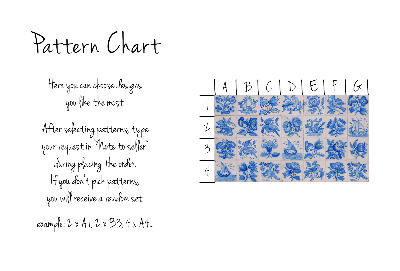 Pattern Chart
Here you can choose designs
you like the most.
After selecting patterns, type
your request in "Note to seller"
during placing the order.
If you don't pick patterns,
you will receive a random set.
example: 2 x A1, 2 x B3, 4 x A4...
A B C D E F G
1
2
3
4